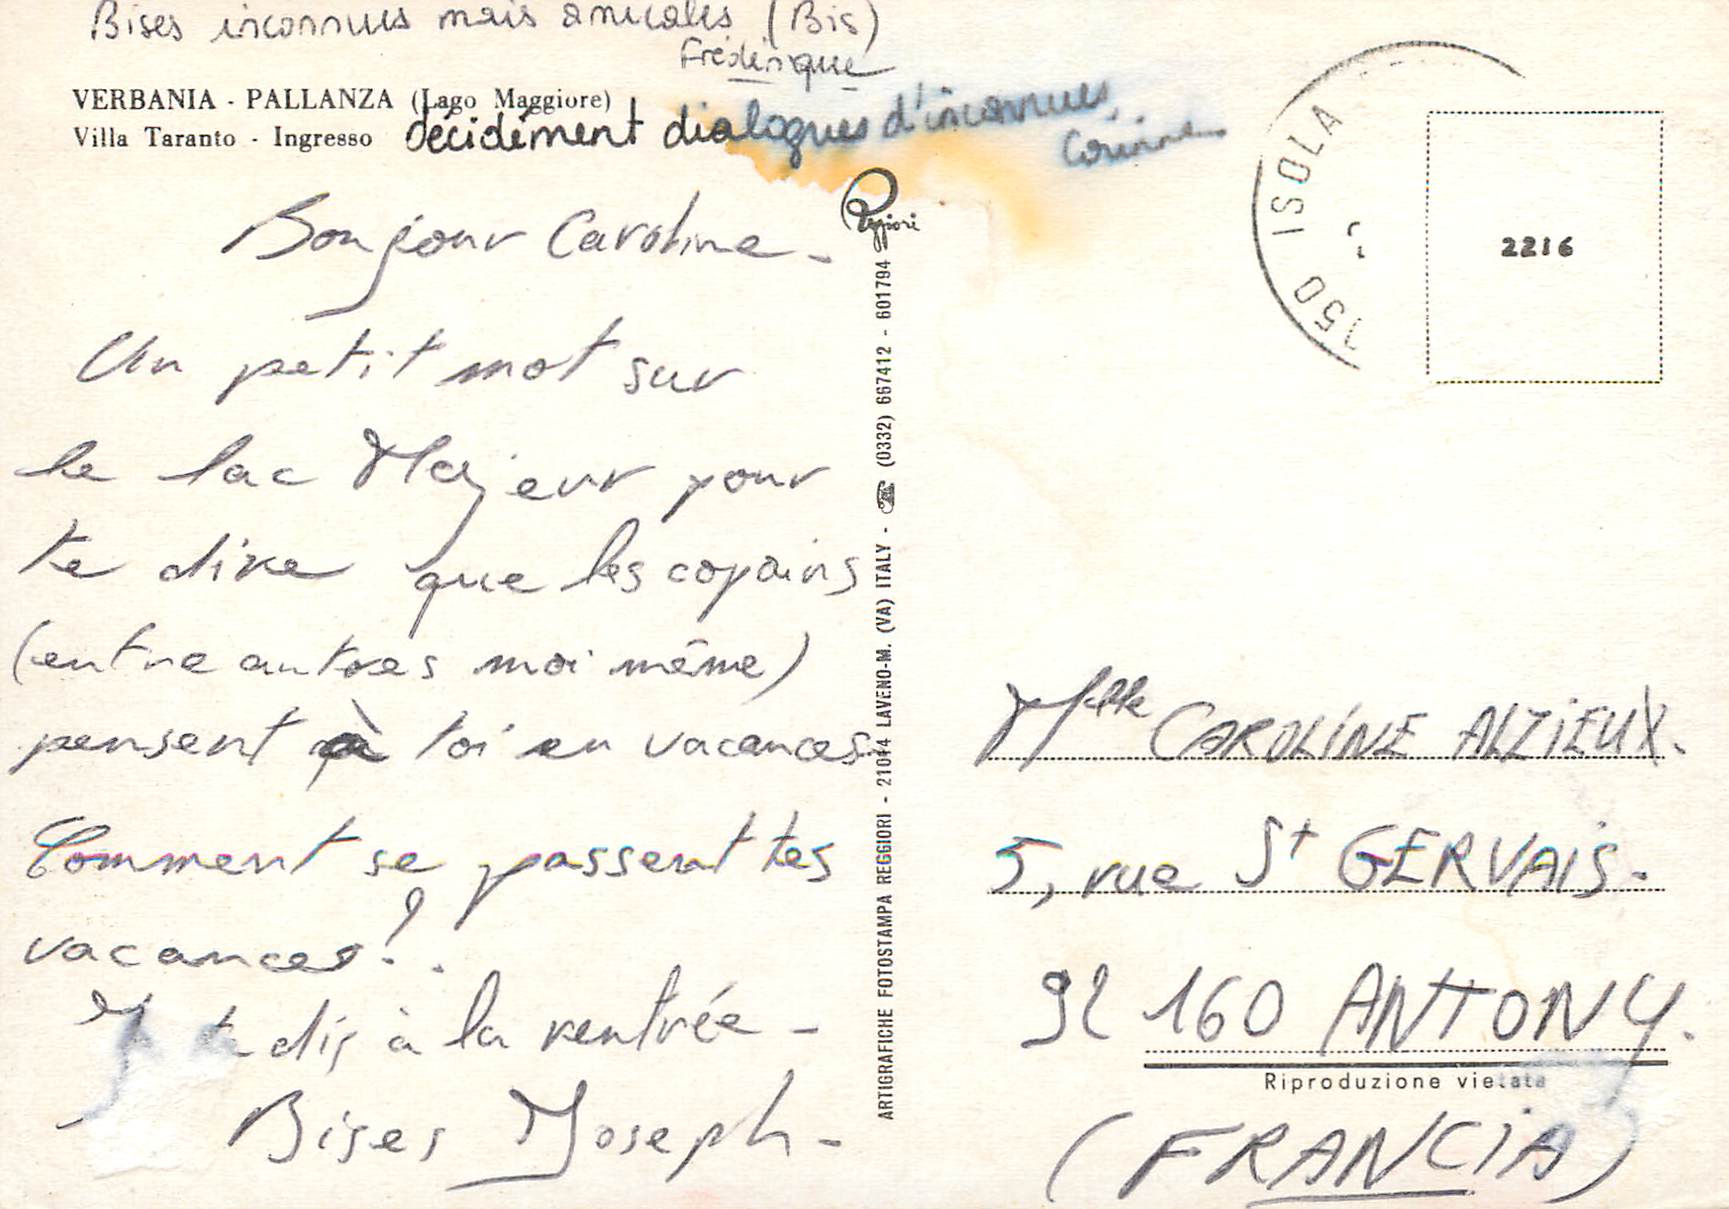 Bises inconnues mais amicales (Bis)
Frédérique
VERBANIA - PALLANZA (Lago Maggiore)
Villa Taranto - Ingresso
décidément dialogues d'inconnues,
Corinne
Bonjour Caroline -
Un petit mot sur
le lac Majeur pour
te dire que les copains
(entre autres moi même)
pensent à toi en vacances.
Comment se passent tes
vacances?.
Je te dis à la rentrée -
Bises Joseph -
Reggiori
ARTIGRAFICHE FOTOSTAMPA REGGIORI - 21014 LAVENO-M. (VA) ITALY - ☎ (0332) 667412 - 601794
ISOLA
2216
Mlle CAROLINE ALZIEUX.
5, rue St GERVAIS.
92 160 ANTONY.
Riproduzione vietata
(FRANCIA)